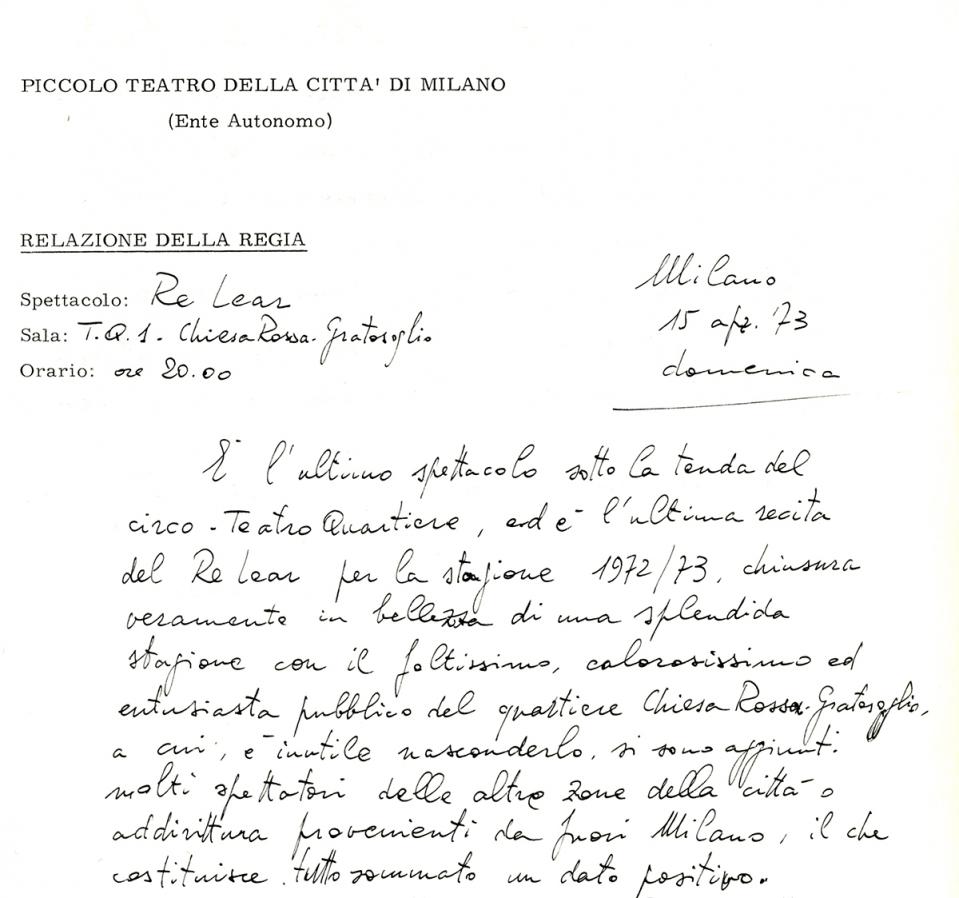 PICCOLO TEATRO DELLA CITTA' DI MILANO
(Ente Autonomo)
RELAZIONE DELLA REGIA
Milano
Spettacolo: Re Lear
15 apr. '73
Sala: T.Q.1. Chiesa Rossa-Gratosoglio
Orario: ore 20.00
domenica
È l'ultimo spettacolo sotto la tenda del
circo-Teatro Quartiere, ed è l'ultima recita
del Re Lear per la stagione 1972/73, chiusura
veramente in bellezza di una splendida
stagione con il foltissimo, calorosissimo ed
entusiasta pubblico del quartiere Chiesa Rossa-Gratosoglio,
a cui, è inutile nasconderlo, si sono aggiunti
molti spettatori delle altre zone della città o
addirittura provenienti da fuori Milano, il che
costituisce tutto sommato un dato positivo.